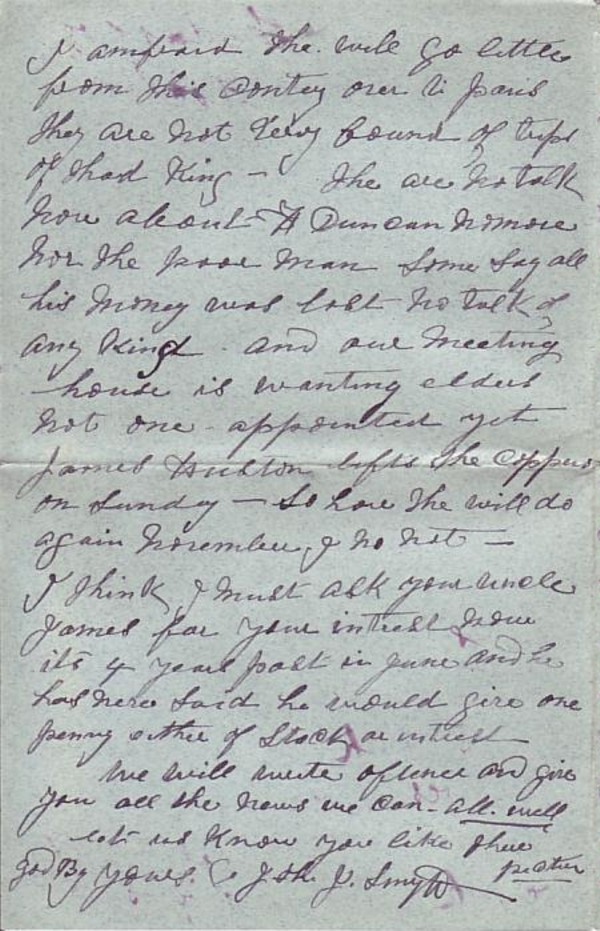 I amfraid the. will go little
from this Contey over to paris
they are not Very found of trips
of that King - the are no talk
now about - A Duncan nomore
nor the poor man some say all
his money was lost no talk of
any Kind. and our Meeting
house is wanting elders
not one - appointed yet
James Huston lifts the Coppers
on Sunday - So how the will do
again November I no not -
I think I must ask your uncle
James for your intrest now
its 4 years past in June and he
has never said he would give one
penny either of Stock or intrest
We will write oftener and give
you all the news we can - all. well
let us Know you like there
pecther
god By yours. Joh. J. Smyth